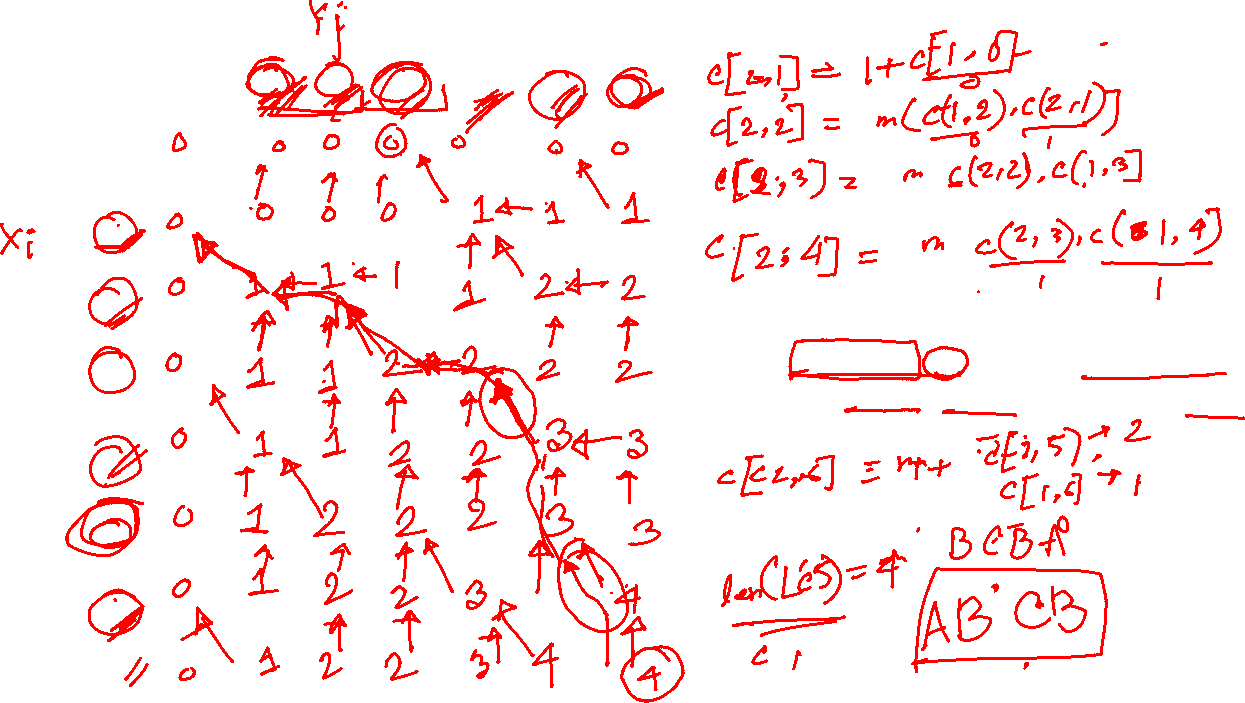 Yj
0 0 0 0 0 0 0
Xi 0 0 0 0 1 1 1
0 1 1 1 1 2 2
0 1 1 2 2 2 2
0 1 1 2 2 3 3
0 1 2 2 2 3 3
0 1 2 2 3 4
0 1 2 2 3 4 4
c[2,1] = 1+c[1,0]
0
c[2,2] = m(c(1,2),c(2,1)]
0 1
c[2,3) = m c(2,2),c(1,3]
c[2,4] = m c(2,3),c(1,4)
1 1
5) → 2
c[1,6] → 1
BCBA
len(LCS) = 4
AB CB